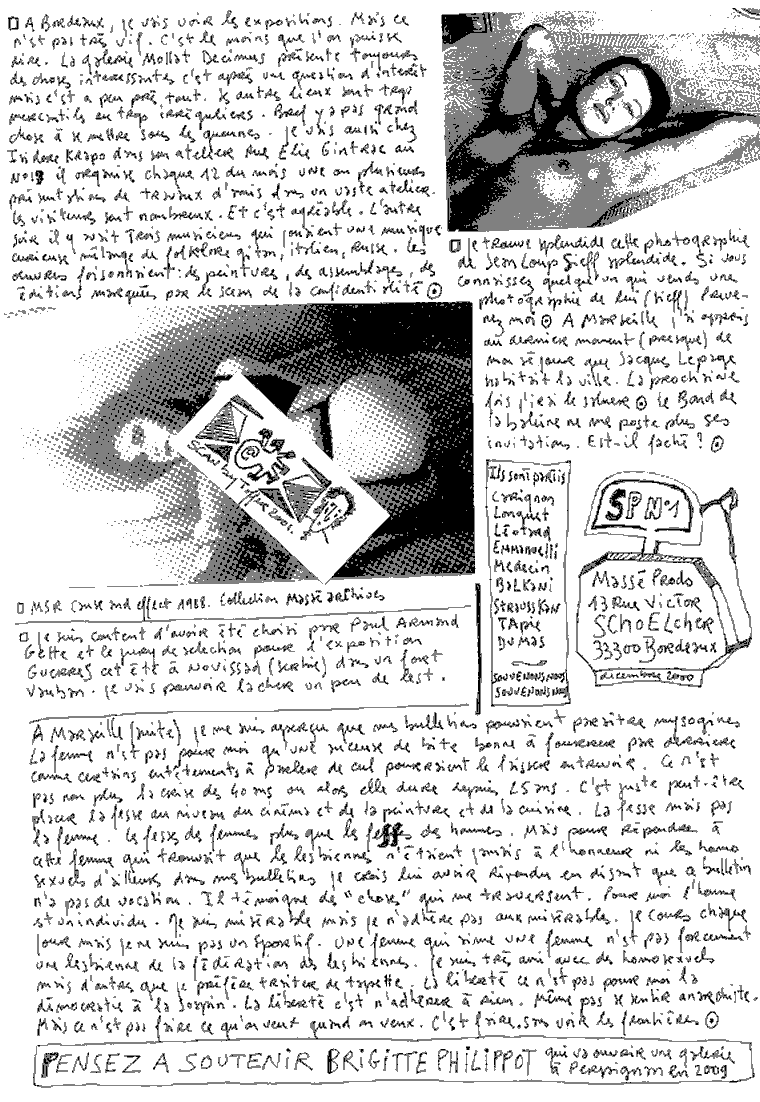 A Bordeaux, je vais voir les expositions. Mais ce
n'est pas très vif. C'est le moins que l'on puisse
dire. La galerie Mollat Decimus présente toujours
des choses intéressantes c'est après une question d'intérêt
mais c'est a peu près tout. Les autres lieux sont trop
mercantils ou trop irréguliers. Bref y a pas grand
chose à se mettre sous les quennes. Je vais aussi chez
Isidore Krapo dans son atelier Rue Elie Gintrac au
il organise chaque 12 du mois une ou plusieurs
présentations de travaux d'amis dans un vaste atelier.
Les visiteurs sont nombreux. Et c'est agréable. L'autre
soir il y avait trois musiciens qui jouaient une musique
curieuse mélange de folklore gitan, italien, russe. Les
œuvres foisonnaient : des peintures, des assemblages, des
éditions marquées par le sceau de la confidentialité
Je trouve splendide cette photographie
de Jean Loup Sieff splendide. Si vous
connaissez quelqu'un qui vends une
photographie de lui (Sieff) Preve-
nez moi A Marseille j'ai appris
au dernière moment (presque) de
mon séjour que Jacques Lepage
habitait la ville. La prochaine
fois j'irai le saluer Le Band de
la baleine ne me poste plus ses
invitations. Est-il faché ?
Scan by T. 2001.
MSR Cause and effect 1988. Collection Massé archives
Je suis content d'avoir été choisi par Paul Armand
Gette et le jury de selection pour l'exposition
GUERRES cet été à Novissad (Serbie) dans un fort
Vauban. Je vais pouvoir lacher un peu de lest.
Ils sont partis
Carignon
Longuet
Léotard
Emmanuelli
Medecin
BALKANi
STRAUSSKAN
TApie
DUMAS
SOUVENONS NOUS
SOUVENONS NOUS
SP N°1
Massé Prods
13 Rue Victor
SCHOELCher
33300 Bordeaux
décembre 2000
A Marseille (suite) je me suis aperçu que mes bulletins pouvaient paraitre mysogines
La femme n'est pas pour moi qu'une suceuse de bite bonne à fourrer par derrière
comme certains entêtements à parler de cul pourraient le laisser entrevoir. Ce n'est
pas non plus la crise des 40 ans ou alors elle dure depuis 25 ans. C'est juste peut-être
placer la fesse au niveau du cinéma et de la peinture et de la cuisine. La fesse mais pas
la femme. Les fesses des femmes plus que les fesses des hommes. Mais pour répondre à
cette femme qui trouvait que les lesbiennes n'étaient jamais à l'honneur ni les homo
sexuels d'ailleurs dans mes bulletins je crois lui avoir répondu en disant que ce bulletin
n'a pas de vocation. Il témoigne des "choses" qui me traversent. Pour moi l'homme
est un individu. Je suis misérable mais je n'adhère pas aux misérables. Je cours chaque
jour mais je ne suis pas un sportif. Une femme qui aime une femme n'est pas forcement
une lesbienne de la fédération des lesbiennes. Je suis très ami avec des homosexuels
mais d'autres que je préfère traiter de tapette. La liberté ce n'est pas pour moi la
démocratie à la Jospin. La liberté c'est n'adhérer à rien. Même pas se sentir anarchiste.
Mais ce n'est pas faire ce qu'on veut quand on veux. C'est faire sans voir les frontières
PENSEZ A SOUTENIR BRIGITTE PHILIPPOT qui va ouvrir une galerie
à Perpignan en 2009